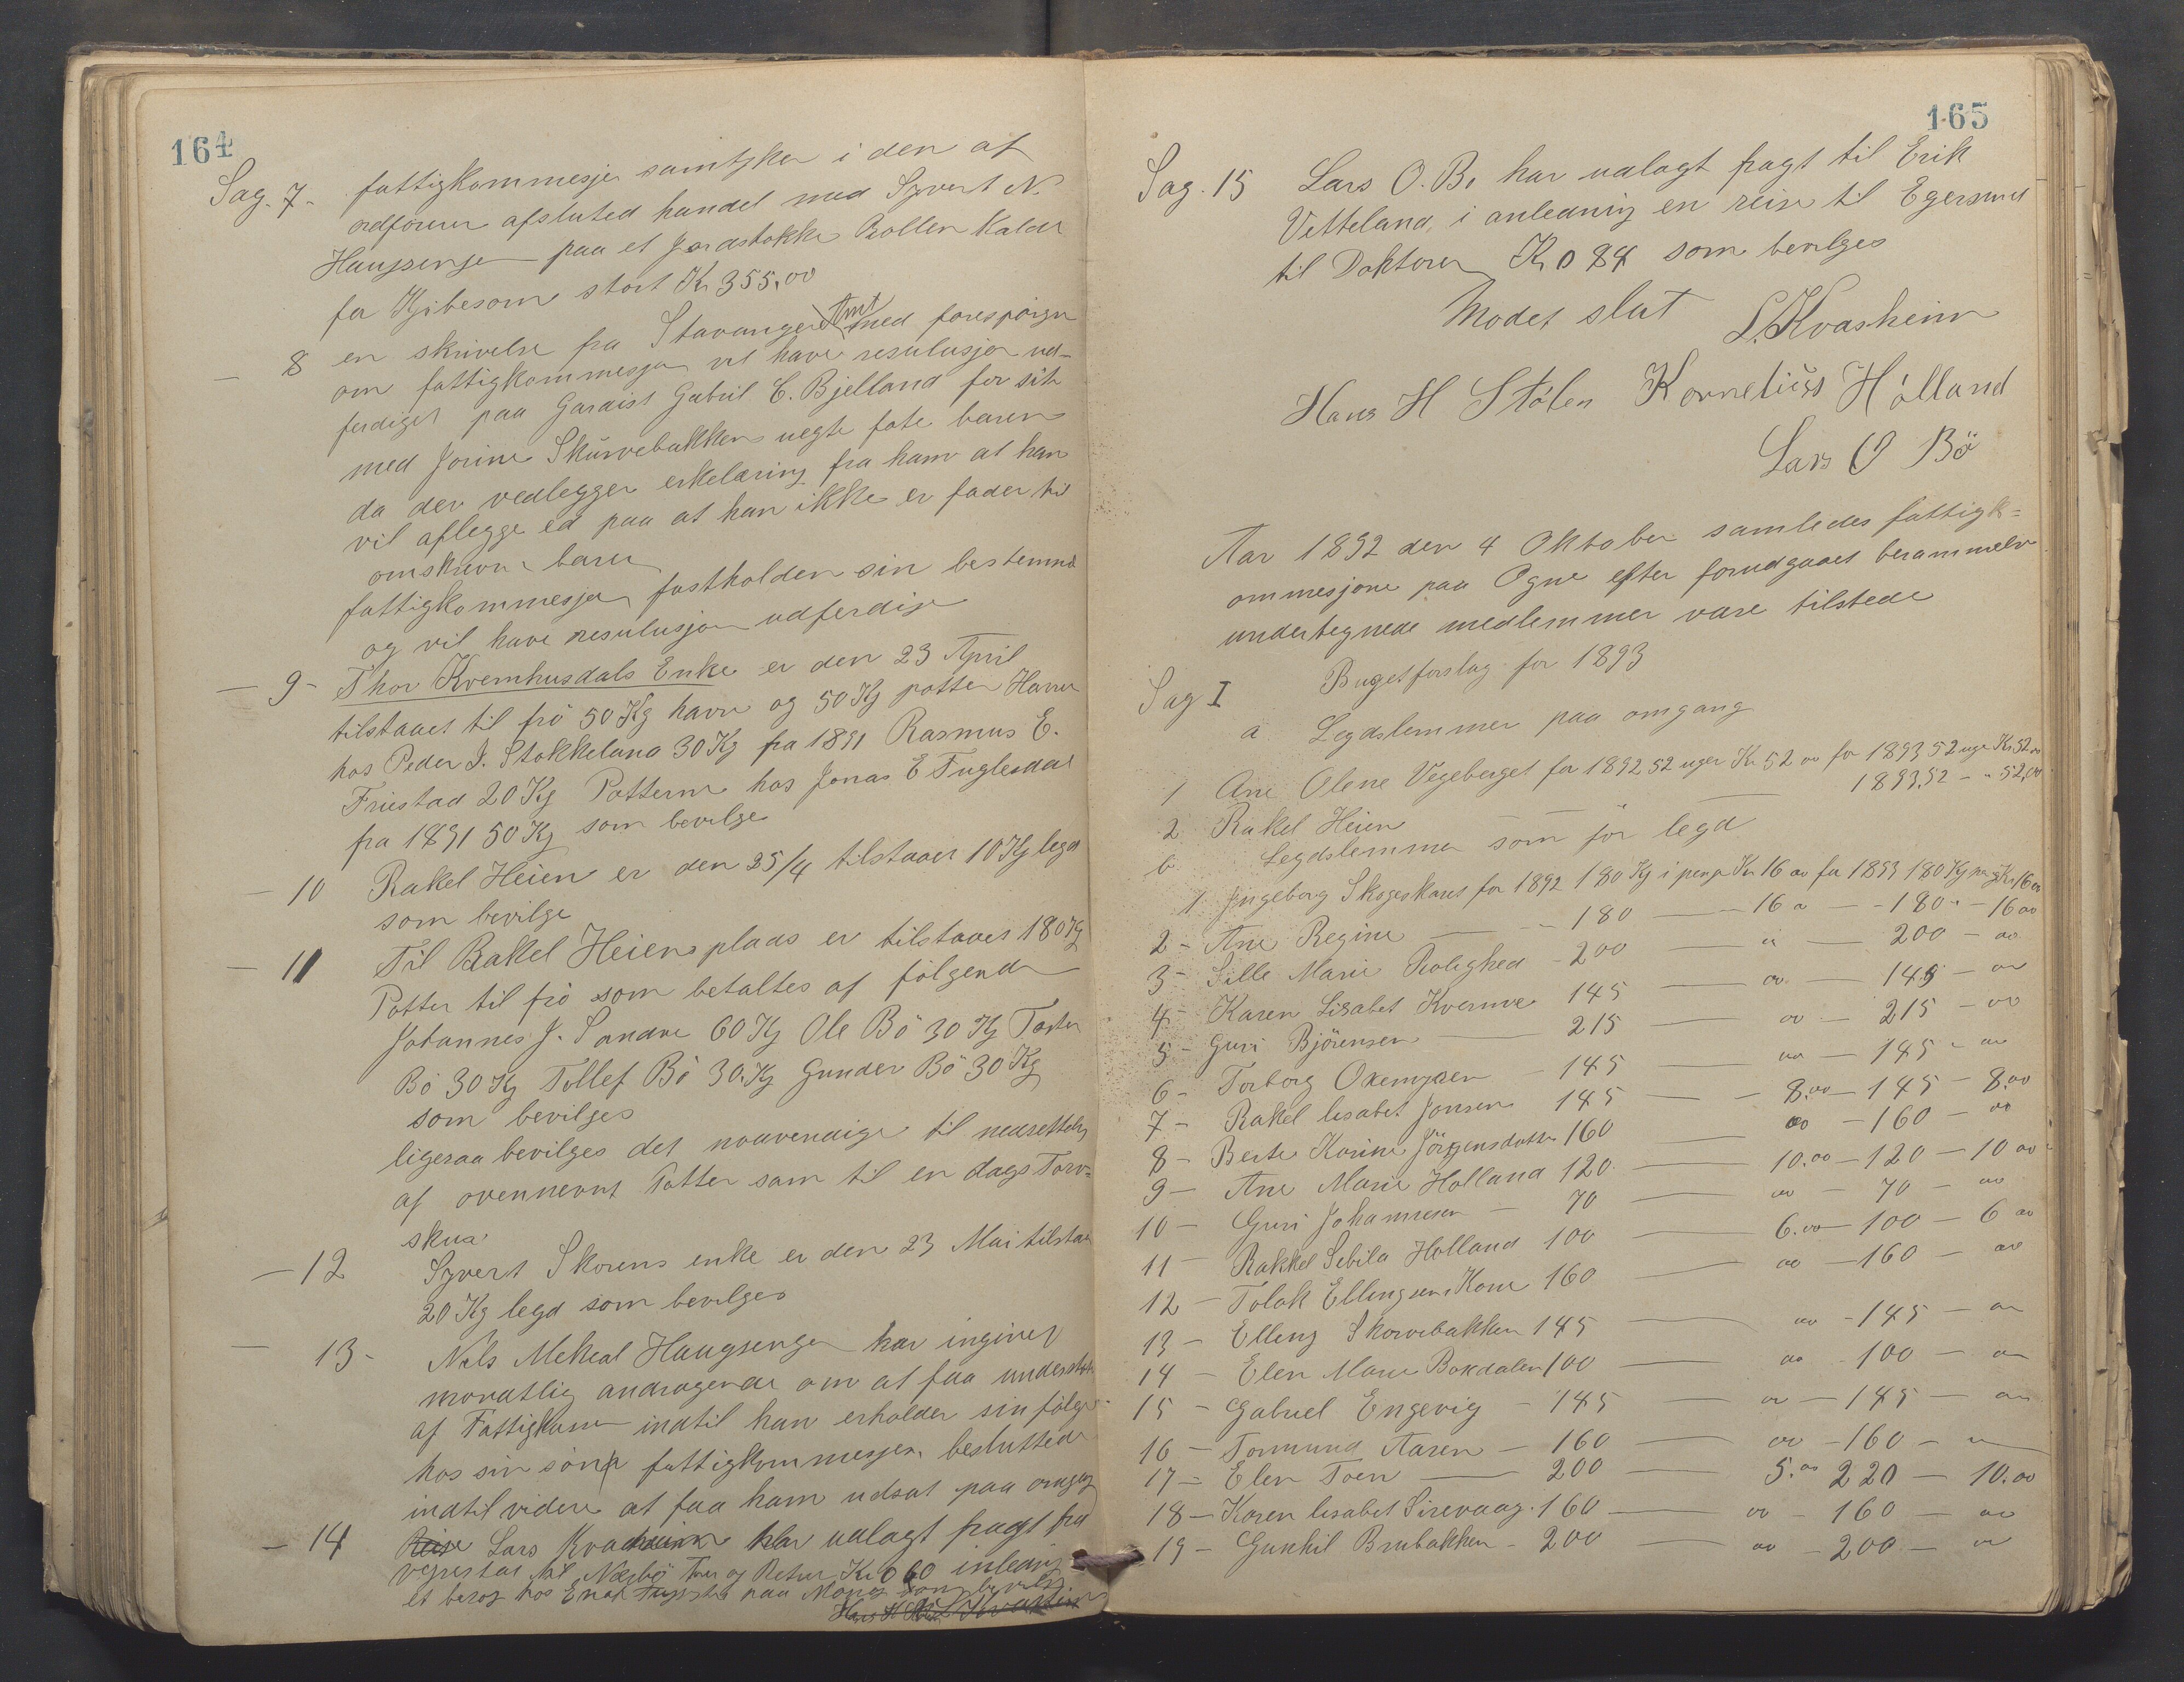 164
Sag. 7. fattigkommesjen samtyker i den af
ordförerer afsluted handel med Syvert N.
Haugsenge paa et Jordstokke Rollen Kaldet
for Kjöbesom stort Kr 355.00
— 8 en skrivelse fra Stavanger Amt med forespörgn
om fattigkommesjen vil have resulusjon ud-
ferdiget paa Gardist Gabriel C. Bjelland for sit
med Jorine Skurvebakken uegte föte baren
da der vedlegger erkelæring fra ham at han
vil aflegge ed paa at han ikke er fader til
omskrevne baren
fattigkommesjen fastholden sin bestemmd
og vil have resulusjon udferdige
— 9 - Thor Kvernhusdals Enke er den 23 April
tilstaaet til frö 50 Kg havre og 50 Kg potter Havren
hos Peder J. Stokkeland 30 Kg fra 1891 Rasmus E.
Friestad 20 Kg Potterne hos Jonas E Fuglesdal
fra 1891 50 Kg som bevilge
— 10 Rakel Heien er den 25/4 tilstaaer 10 Kg legd
som bevilge
— 11 Til Rakel Heiens plads er tilstaaes 180 Kg
Potter til frö som betaltes af fölgende
Johannes J. Sandve 60 Kg Ole Bö 30 Kg Torkel
Bö 30 Kg Tollef Bö 30 Kg Gunder Bö 30 Kg
som bevilges
ligesaa bevilges det nødvendige til nedsetteln
af ovennevnt Potter sam til en dags Torv-
skua
— 12 Syvert Skorens enke er den 23 Mai tilstaa
20 Kg legd som bevilges
— 13 - Nels Mekeal Haugsenge har inginet
moratlig andragende om at faa understöt
af Fattigkassen indtil han erholder sin fölge
hos sin sönn fattigkommesjen besluttede
indtil videre at faa ham udsat paa omgang
— 14 Lars Kvasheim har udlagt fragt fra
vegrestad til Nærbö Tur og Retur Kr 0 60 inledning
et besög hos Enok Tugstad paa Mong som bevilges
165
Sag. 15 Lars O. Bö har udlagt fragt til Erik
Vetteland, i anledning en reise til Egersund
til Doktoren Kr 0 84 som bevilges
Modet slut
L. Kvasheim
Hans H Stölen Kornelius Hölland
Lars O Bö
Aar 1892 den 4 Oktober samledes fattigk=
ommesjone paa Ogne efter forudgaaet berammelse
undertegnede medlemmer vare tilstede
Sag I Bugetforslag for 1893
a Legdslemmer paa omgang
1 Ane Olene Vegeberget for 1892 52 uger Kr 52 00 for 1893 52 uge Kr 52 00
2 Rakel Heien — — — 1893. 52 - " 52,00
b Legdslemmer som för legd
1 Ingeborg Skogeskaret for 1892 180 Kg i penge Kr 16 00 for 1893 180 Kg peng Kr 16 00
2 - Ane Regine — — 180 — — 16 00 — 180 " - 16 00
3 - Sille Marie Rolighed - 200 — " — 200 - 00
4 - Karen Lisabet Kverme 145 — 00 — 145 - 00
5 - Guri Björensen — 215 — 00 — 215 - 00
6 - Torborg Oxemyren - 145 — 00 — 145 - 00
7 - Rakel lisabet Jonsen 145 — 8.00 — 145 - 8.00
8 - Berte Korine Jörgensdatter 160 — 00 — 160 - 00
9 - Ane Marie Holland 120 — 10.00 — 120 — 10 00
10 - Guri Johannesen — 70 — 00 — 70 - 00
11 - Rakkel Sebila Holland 100 — 6.00 — 100 — 6 00
12 - Tolak Ellingsens Kone 160 — 00 — 160 - 00
13 - Elleng Skorvebakken 145 — 00 - 145 - 00
14 - Elen Marie Bokdalen 100 — 00 - 100 - 00
15 - Gabriel Engevig - 145 — 00 - 145 - 00
16 - Tormund Aasen - 160 — 00 - 160 - 00
17 - Elen Toen — 200 — 5.00 220 — 10.00
18 - Karen lisabet Sirevaag. 160 — 00 - 160 — 00
19 - Gunhil Brubakken - 200 — 00 - 200 — 00